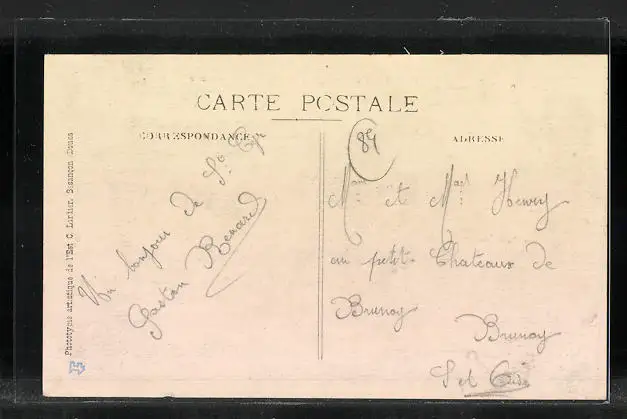 CARTE POSTALE
CORRESPONDANCE
ADRESSE
Un bonjour de St Cyr
Gaston Benard
89
et Henry
au petit Chateaux de
Brunoy
Brunoy
S et Oise
Phototypie artistique de l'Est C. Lardier, Besançon (Doubs